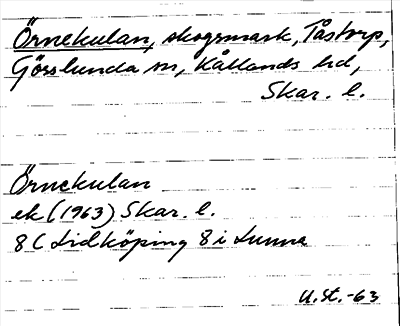 Örnekulan, skogsmark, Tåstorp,
Gösslunda sn, Kållands hd,
Skar. l.
Örnekulan
ek (1963) Skar. l.
8 C Lidköping 8 i Lunne
U.St.-63